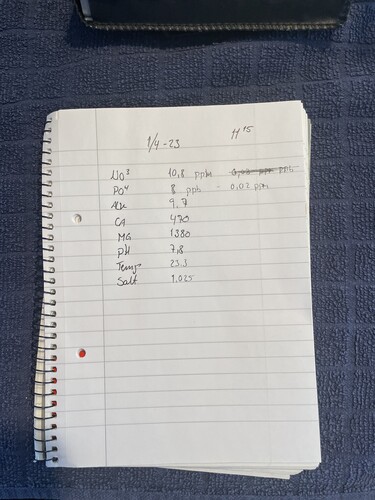 1/4-23 11¹⁵
NO³ 10,8 ppm
PO⁴ 8 ppb - 0,02 ppm
Alk 9,7
CA 470
MG 1380
pH 7,8
Temp 25.5
Salt 1.025